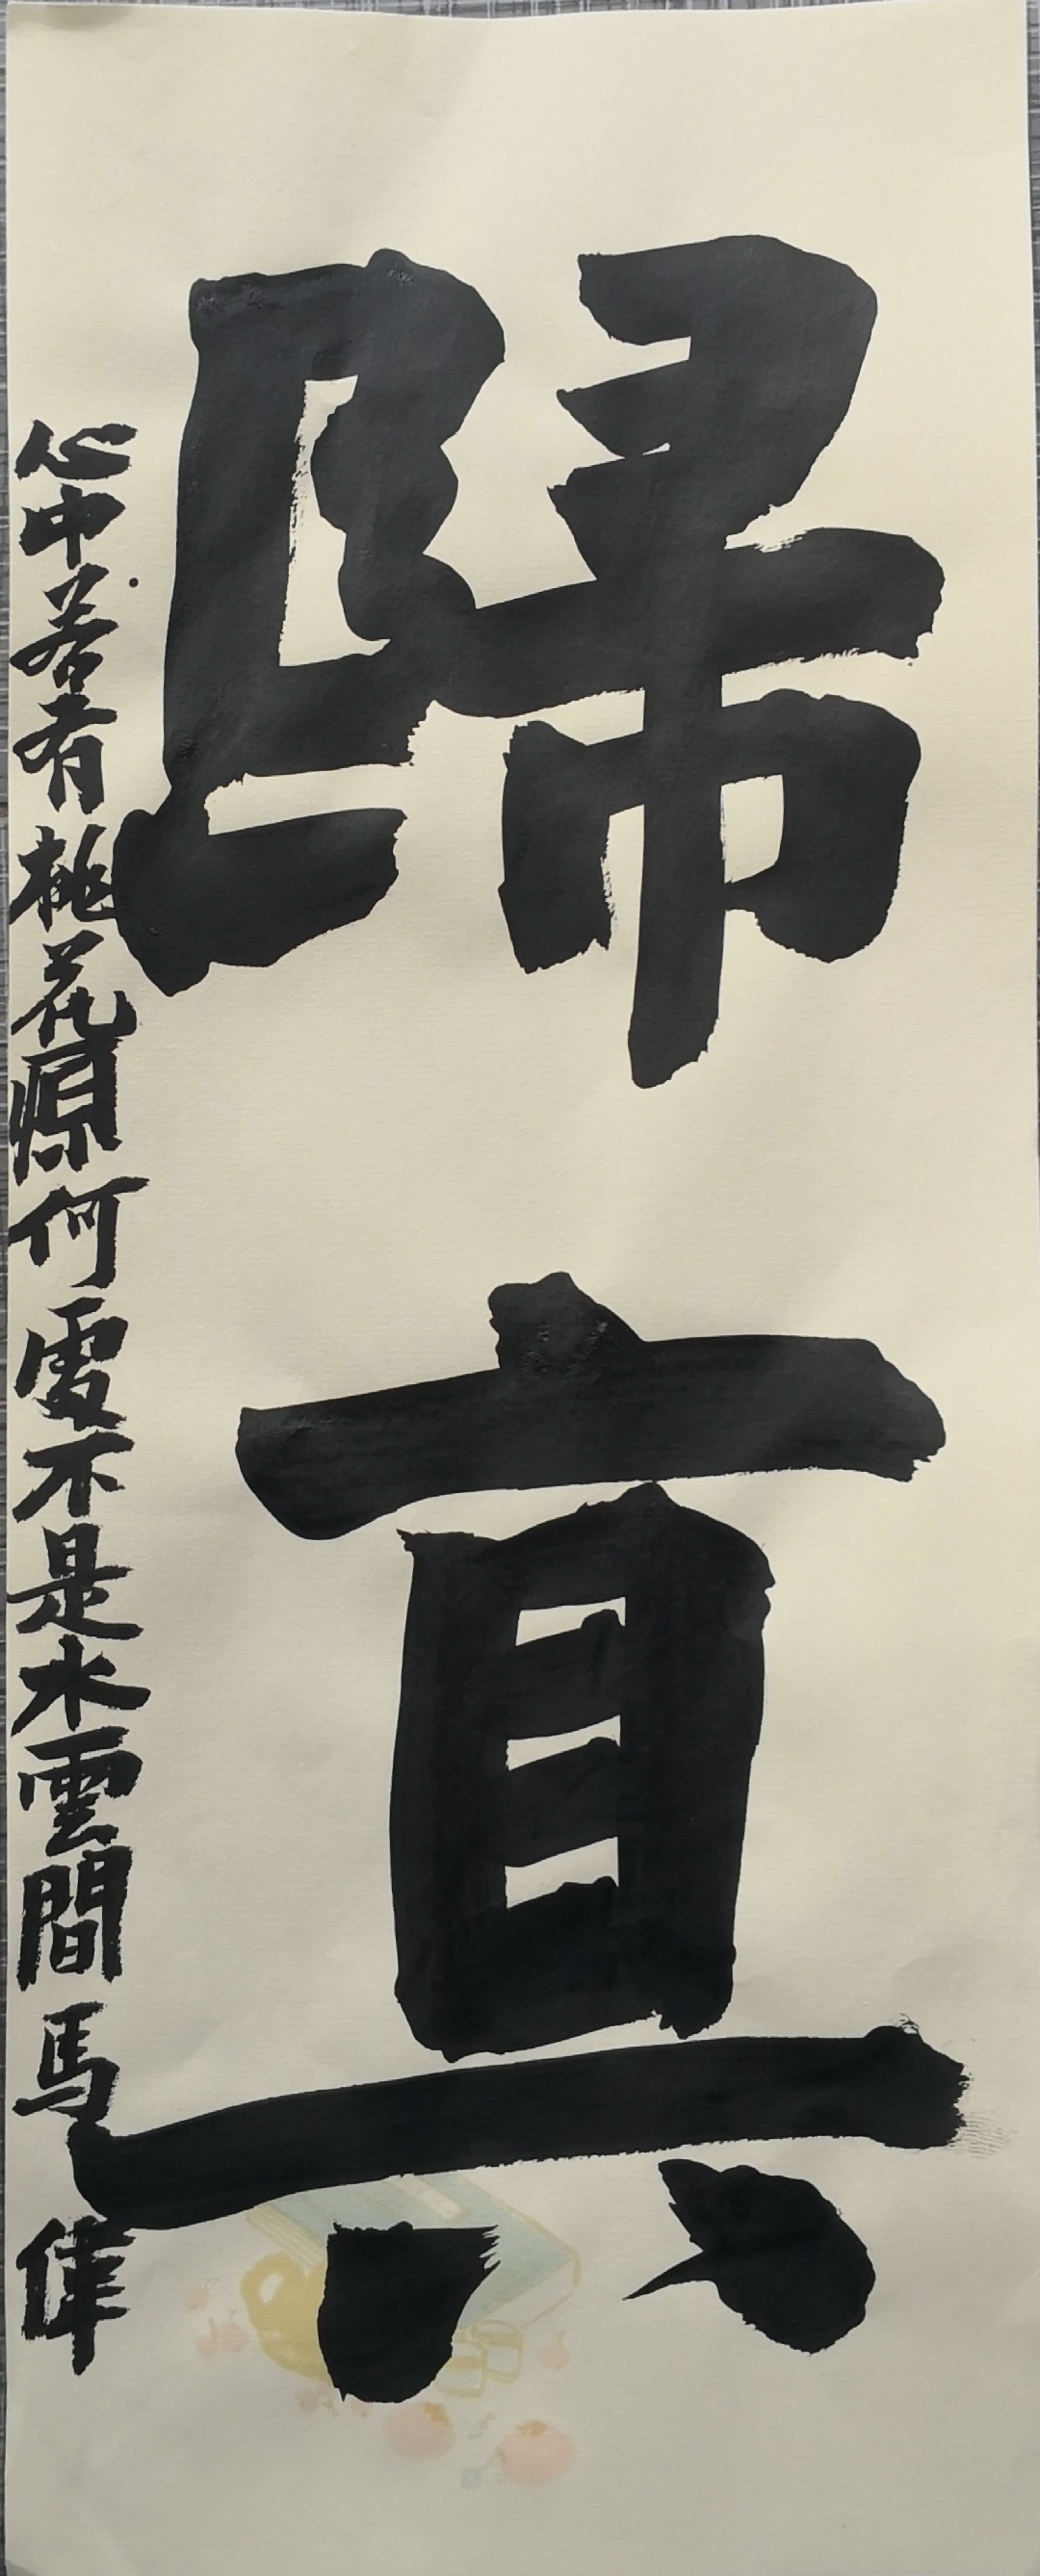 歸真
心中若有桃花源何處不是水雲間馬偉